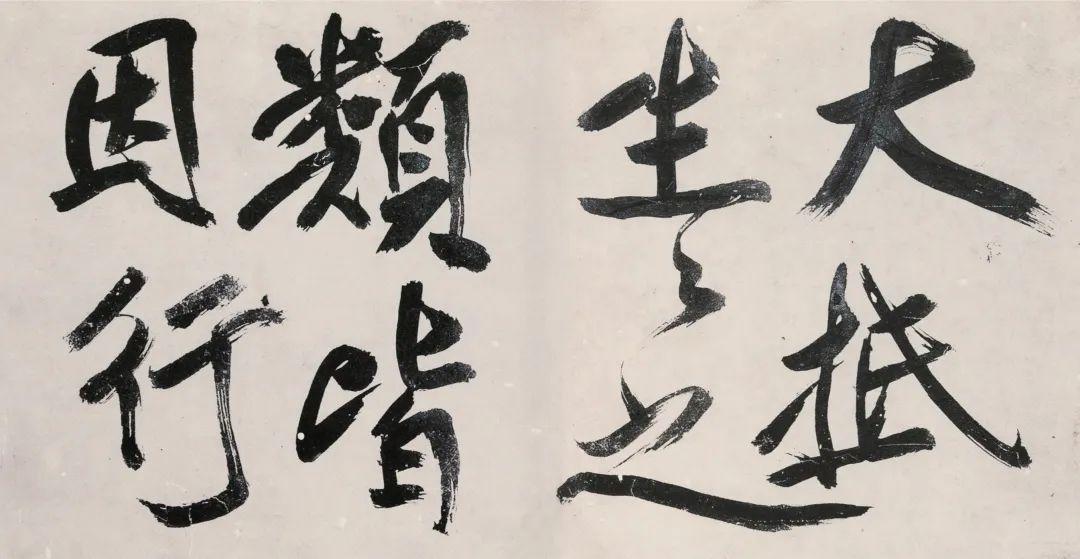 大抵
生々之
類皆
因行